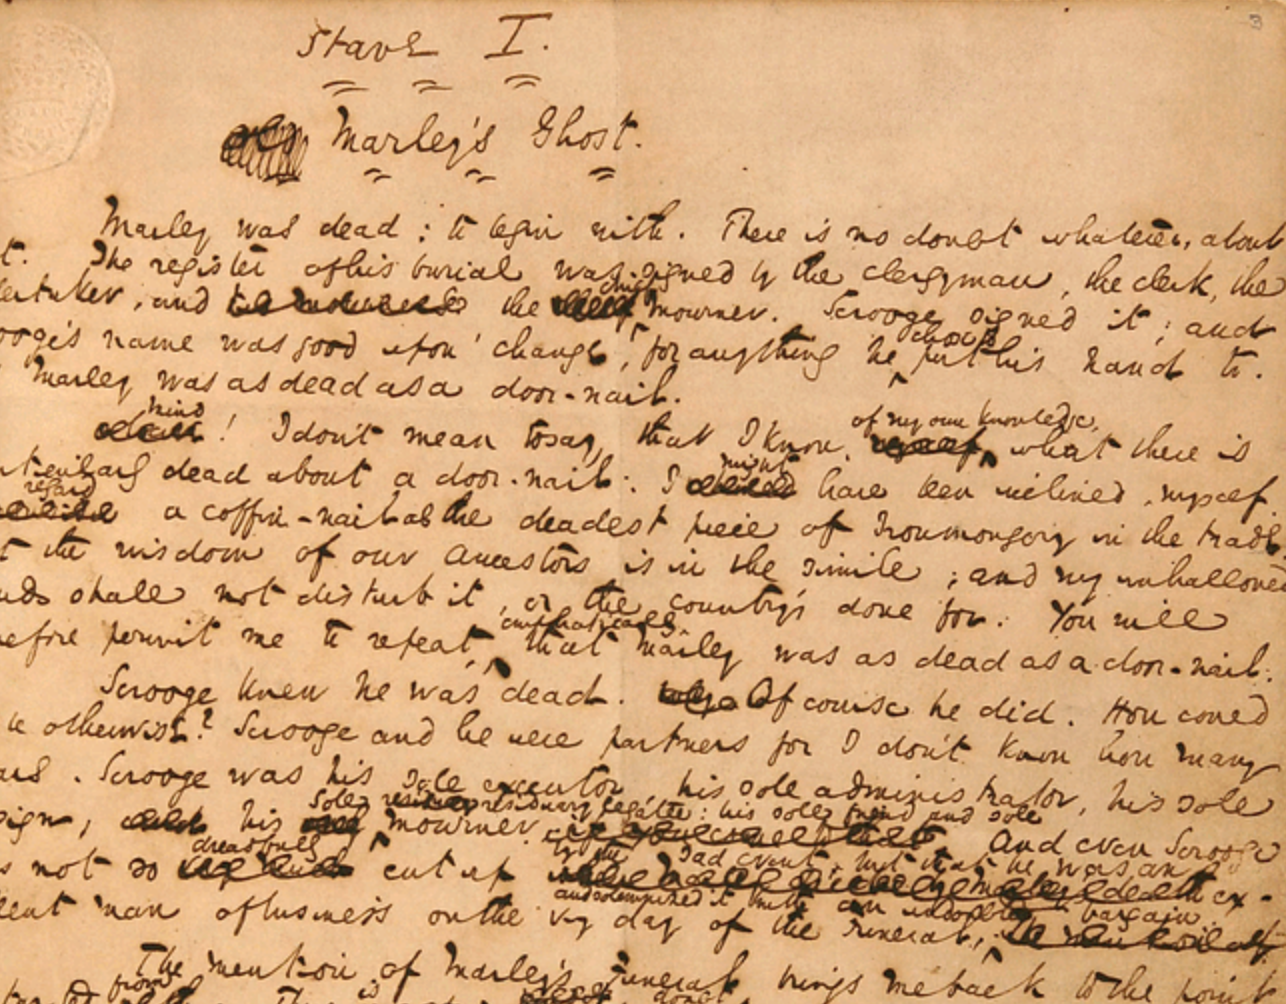 3
Stave I.
Marley's Ghost.
Marley was dead: to begin with. There is no doubt whatever, about
t. The register of his burial was signed by the clergyman, the clerk, the
dertaker, and the chief mourner. Scrooge signed it; and
ooge's name was good upon 'change, for anything he chose to put his hand to.
Marley was as dead as a door-nail.
Mind! I don't mean to say, that I know, of my own knowledge, what there is
rticularly dead about a door-nail. I might have been inclined, myself,
regard a coffin-nail as the deadest piece of Ironmongery in the trade
t the wisdom of our Ancestors is in the simile; and my unhallowed
nds shall not disturb it, or the country's done for. You will
refore permit me to repeat, emphatically, that Marley was as dead as a door-nail.
Scrooge knew he was dead. Of course he did. How could
be otherwise? Scrooge and he were partners for I don't know how many
ars. Scrooge was his sole executor, his sole administrator, his sole
sign, his sole residuary legatee: his sole friend and sole mourner. And even Scrooge
s not so dreadfully cut up by the sad event, but that he was an ex-
lent man of business on the very day of the funeral, and solemnized it with an undoubted bargain.
The mention of Marley's funeral brings me back to the point
from